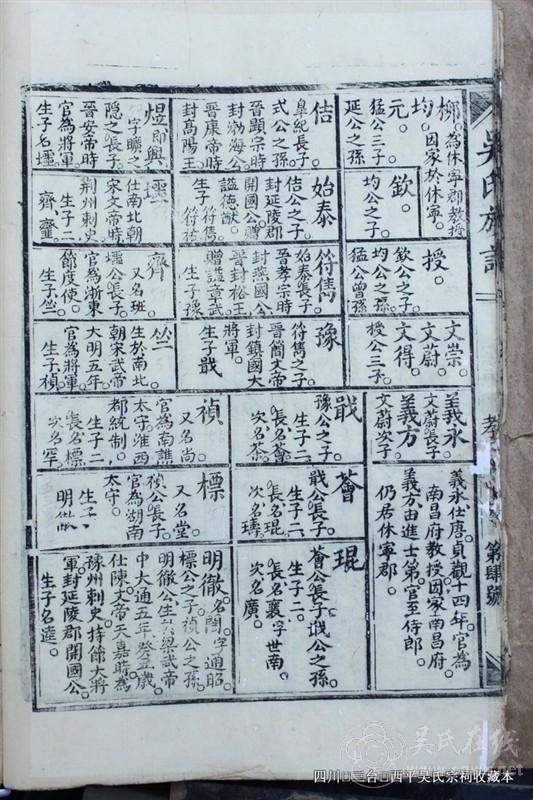 吳氏族譜
第肆號
梛
為休寧郡教授
因家於休寧
均
元
猛公三子
延公之孫
欽
均公之子
授
欽公之子
均公之孫
猛公曾孫
文崇
文蔚
文得
授公三子
義永
文蔚長子
義方
文蔚次子
義永仕唐貞觀十四年官為
南昌府教授因家南昌府
義方由進士第官至侍郎
仍居休寧郡
佶
皐紀長子
式公之孫
晉顯宗時
封渤海公
晉康帝時
封高陽王
始泰
佶公之子
封延陵郡
開國公贈
謚德猷
生子符雋
符祐
符雋
始泰長子
晉孝宗時
封燕國公
晉封裕王
贈謚章武
生子豫
豫
符雋之子
晉簡文帝
封鎮國大
將軍
生子戩
戩
豫公之子
生子二
長名薈
次名荼
薈
戩公長子
生子二
長名琨
次名璹
琨
薈公長子戩公之孫
生子二
長名襄字世南
次名廣
煜
即興
字曠之
隱之長子
晉安帝時
官為將軍
生子名壥
壥
仕南北朝
宋文帝時
荊州刺史
生子二
齊
齊
又名班
壥公長子
官為浙東
節度使
生子竺
竺
生於南北
朝宋武帝
大明五年
官為將軍
生子禎
禎
又名尚
官為南譙
太守淮西
都統制
生子二
長名標
次名罕
標
又名堂
禎公長子
官為湖南
太守
生子
明徹
明徹
字通昭
標公之子禎公之孫
明徹公生於梁武帝
中大通五年癸丑歲
仕陳文帝天嘉時為
豫州刺史持節大將
軍封延陵郡開國公
生子名逵
四川三台西平吳氏宗祠收藏本
吴氏在线